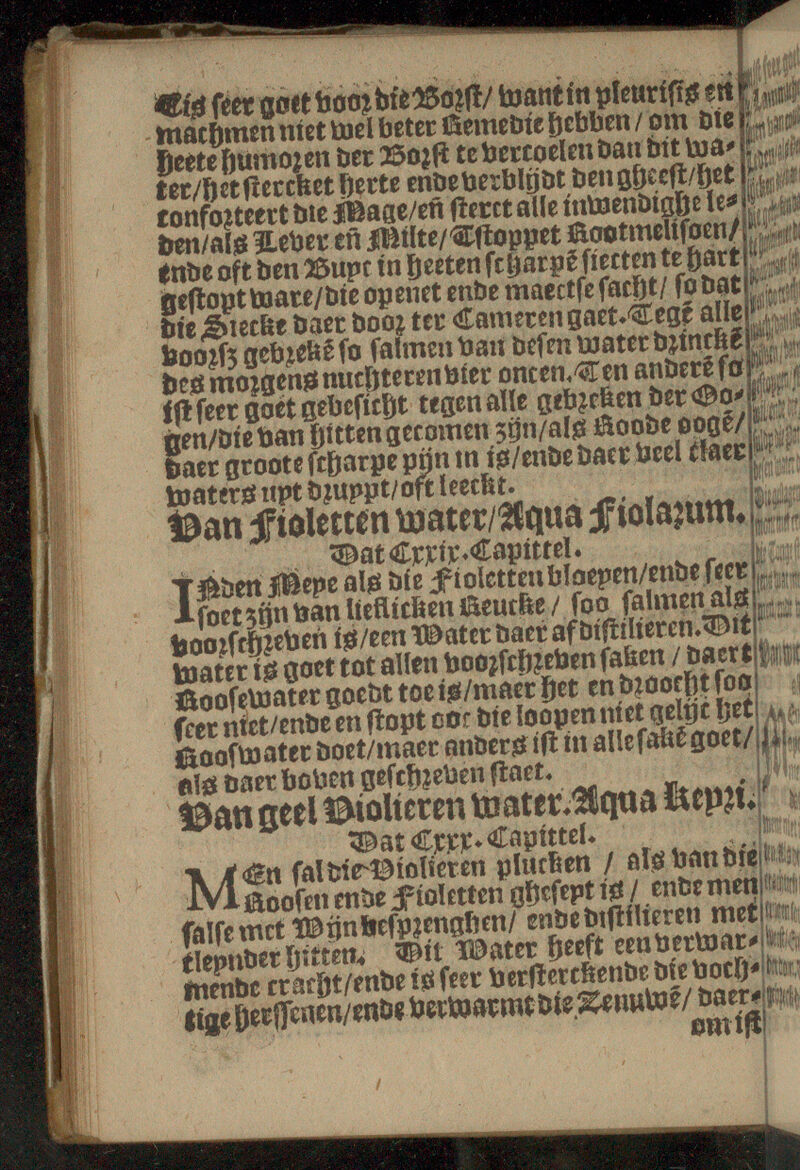 Tis seer goet voor die Borst/ want in pleurisis eñ
machmen niet wel beter Remedie hebben / om die
heete humoren der Borst te vercoelen dan dit wa-
ter/het stercket herte ende verblijdt den gheest/het
confoorteert die Mage/eñ sterct alle inwendighe le-
den/als Lever eñ Milte/Tstoppet Rootmelisoen/
ende oft den Buyc in heeten scharpē siecten te hart
gestopt ware/die openet ende maectse sacht/ so dat
die Siecke daer door ter Cameren gaet. Tegē alle
voorsz gebrekē so salmen van desen water drinckē
des morgens nuchteren vier oncen. Ten anderē so
ist seer goet gebesicht tegen alle gebreken der Oo-
gen/die van hitten gecomen zijn/als Roode oogē/
daer groote scharpe pijn in is/ende daer veel claer
waters uyt druppt/oft leeckt.
Van Fioletten water/Aqua Fiolarum.
Dat Cxxix. Capittel.
INden Meye als die Fioletten bloeyen/ende seer
soet zijn van lieflicken Reucke / soo salmen als
voorschreven is/een Water daer af distilieren. Dit
water is goet tot allen voorschreven saken / daert
Roosewater goedt toe is/maer het en droocht soo
seer niet/ende en stopt ooc die loopen niet gelijc het
Rooswater doet/maer anders ist in alle sakē goet/
als daer boven geschreven staet.
Van geel Violieren water. Aqua Keyri.
Dat Cxxx. Capittel.
MEn sal die Violieren plucken / als van die
Roosen ende Fioletten gheseyt is / ende men
salse met Wijn besprenghen/ ende distilieren met
cleynder hitten. Dit Water heeft een verwar-
mende cracht/ende is seer versterckende die voch-
tige herssenen/ende verwarmt die Zenuwē/ daer-
om ist